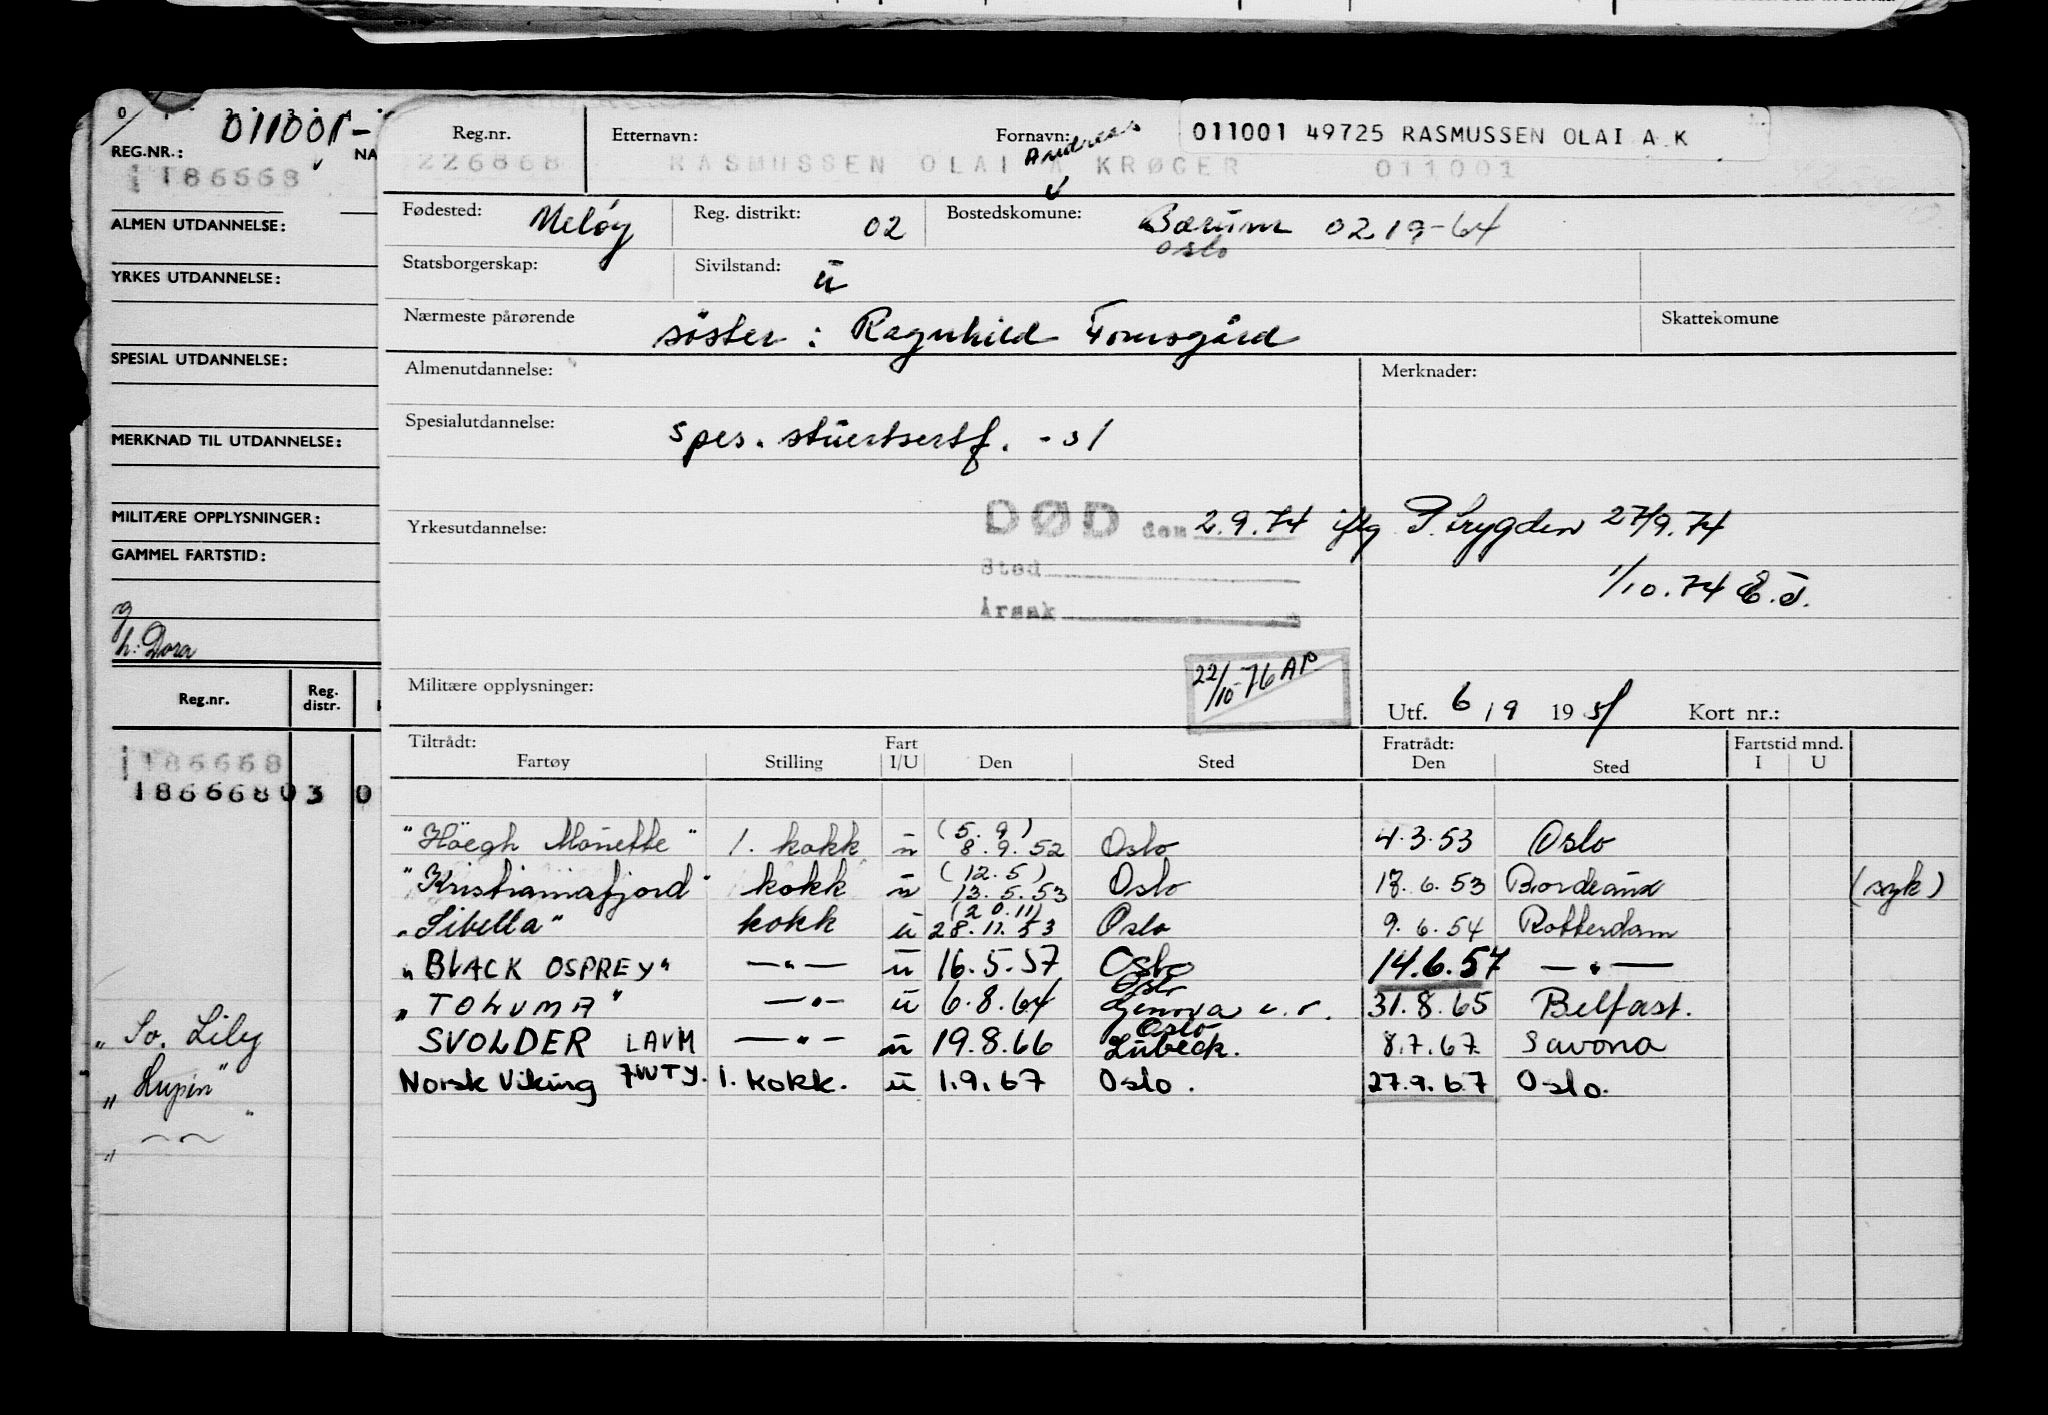 011001-
REG.NR.:
NA
186668
ALMEN UTDANNELSE:
YRKES UTDANNELSE:
SPESIAL UTDANNELSE:
MERKNAD TIL UTDANNELSE:
MILITÆRE OPPLYSNINGER:
GAMMEL FARTSTID:
h: Dora
Reg.nr. Reg. distr.
186668
18666803 0
"So. Lily
"Lupin"
Reg.nr. Etternavn: Fornavn: Andreas 011001 49725 RASMUSSEN OLAI A K
226868 RASMUSSEN OLAI A KRØGER 011001
Fødested: Meløy Reg. distrikt: 02 Bostedskomune: Bærum 0219-64
Oslo
Statsborgerskap: Sivilstand: ü
Nærmeste pårørende søster: Ragnhild Fornsgård Skattekomune
Almenutdannelse: Merknader:
Spesialutdannelse: spes. stuertsertf. -51
DØD den 2.9.74 iflg P.trygden 27/9.74
Yrkesutdannelse:
Sted
1/10.74 E.J.
Årsak
22/10-76 AP
Militære opplysninger:
Utf. 6/9 1951 Kort nr.:
Tiltrådt: Fart Fratrådt: Fartstid mnd.
Fartøy Stilling I/U Den Sted Den Sted I U
(5.9)
"Höegh Monette" 1. kokk u 8.9.52 Oslo 4.3.53 Oslo
(12.5)
"Kristianiafjord" kokk u 13.5.53 Oslo 18.6.53 Bordeaux (syk)
(20.11)
"Sibella" kokk u 28.11.53 Oslo 9.6.54 Rotterdam
"BLACK OSPREY" —"— u 16.5.57 Oslo 14.6.57 —"—
Oslo
"TOLUMA" —"— u 6.8.64 Genova e.o. 31.8.65 Belfast.
Oslo
SVOLDER LAVM —"— u 19.8.66 Lübeck. 8.7.67 Savona
Norsk Viking JWTY. 1. kokk. u 1.9.67 Oslo. 27.9.67 Oslo.